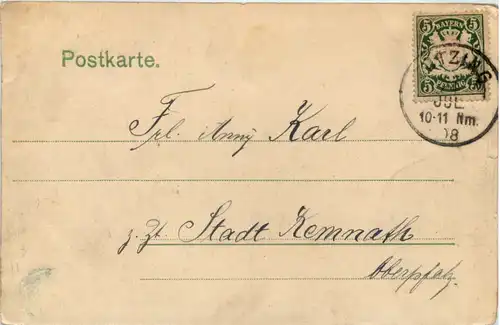 Postkarte.
5 BAYERN 5
5 PFENNIG 5
TZING
JUL.
10-11 Nm.
08
Frl. Anny Karl
z. Zt. Stadt Kemnath
Oberpfalz.